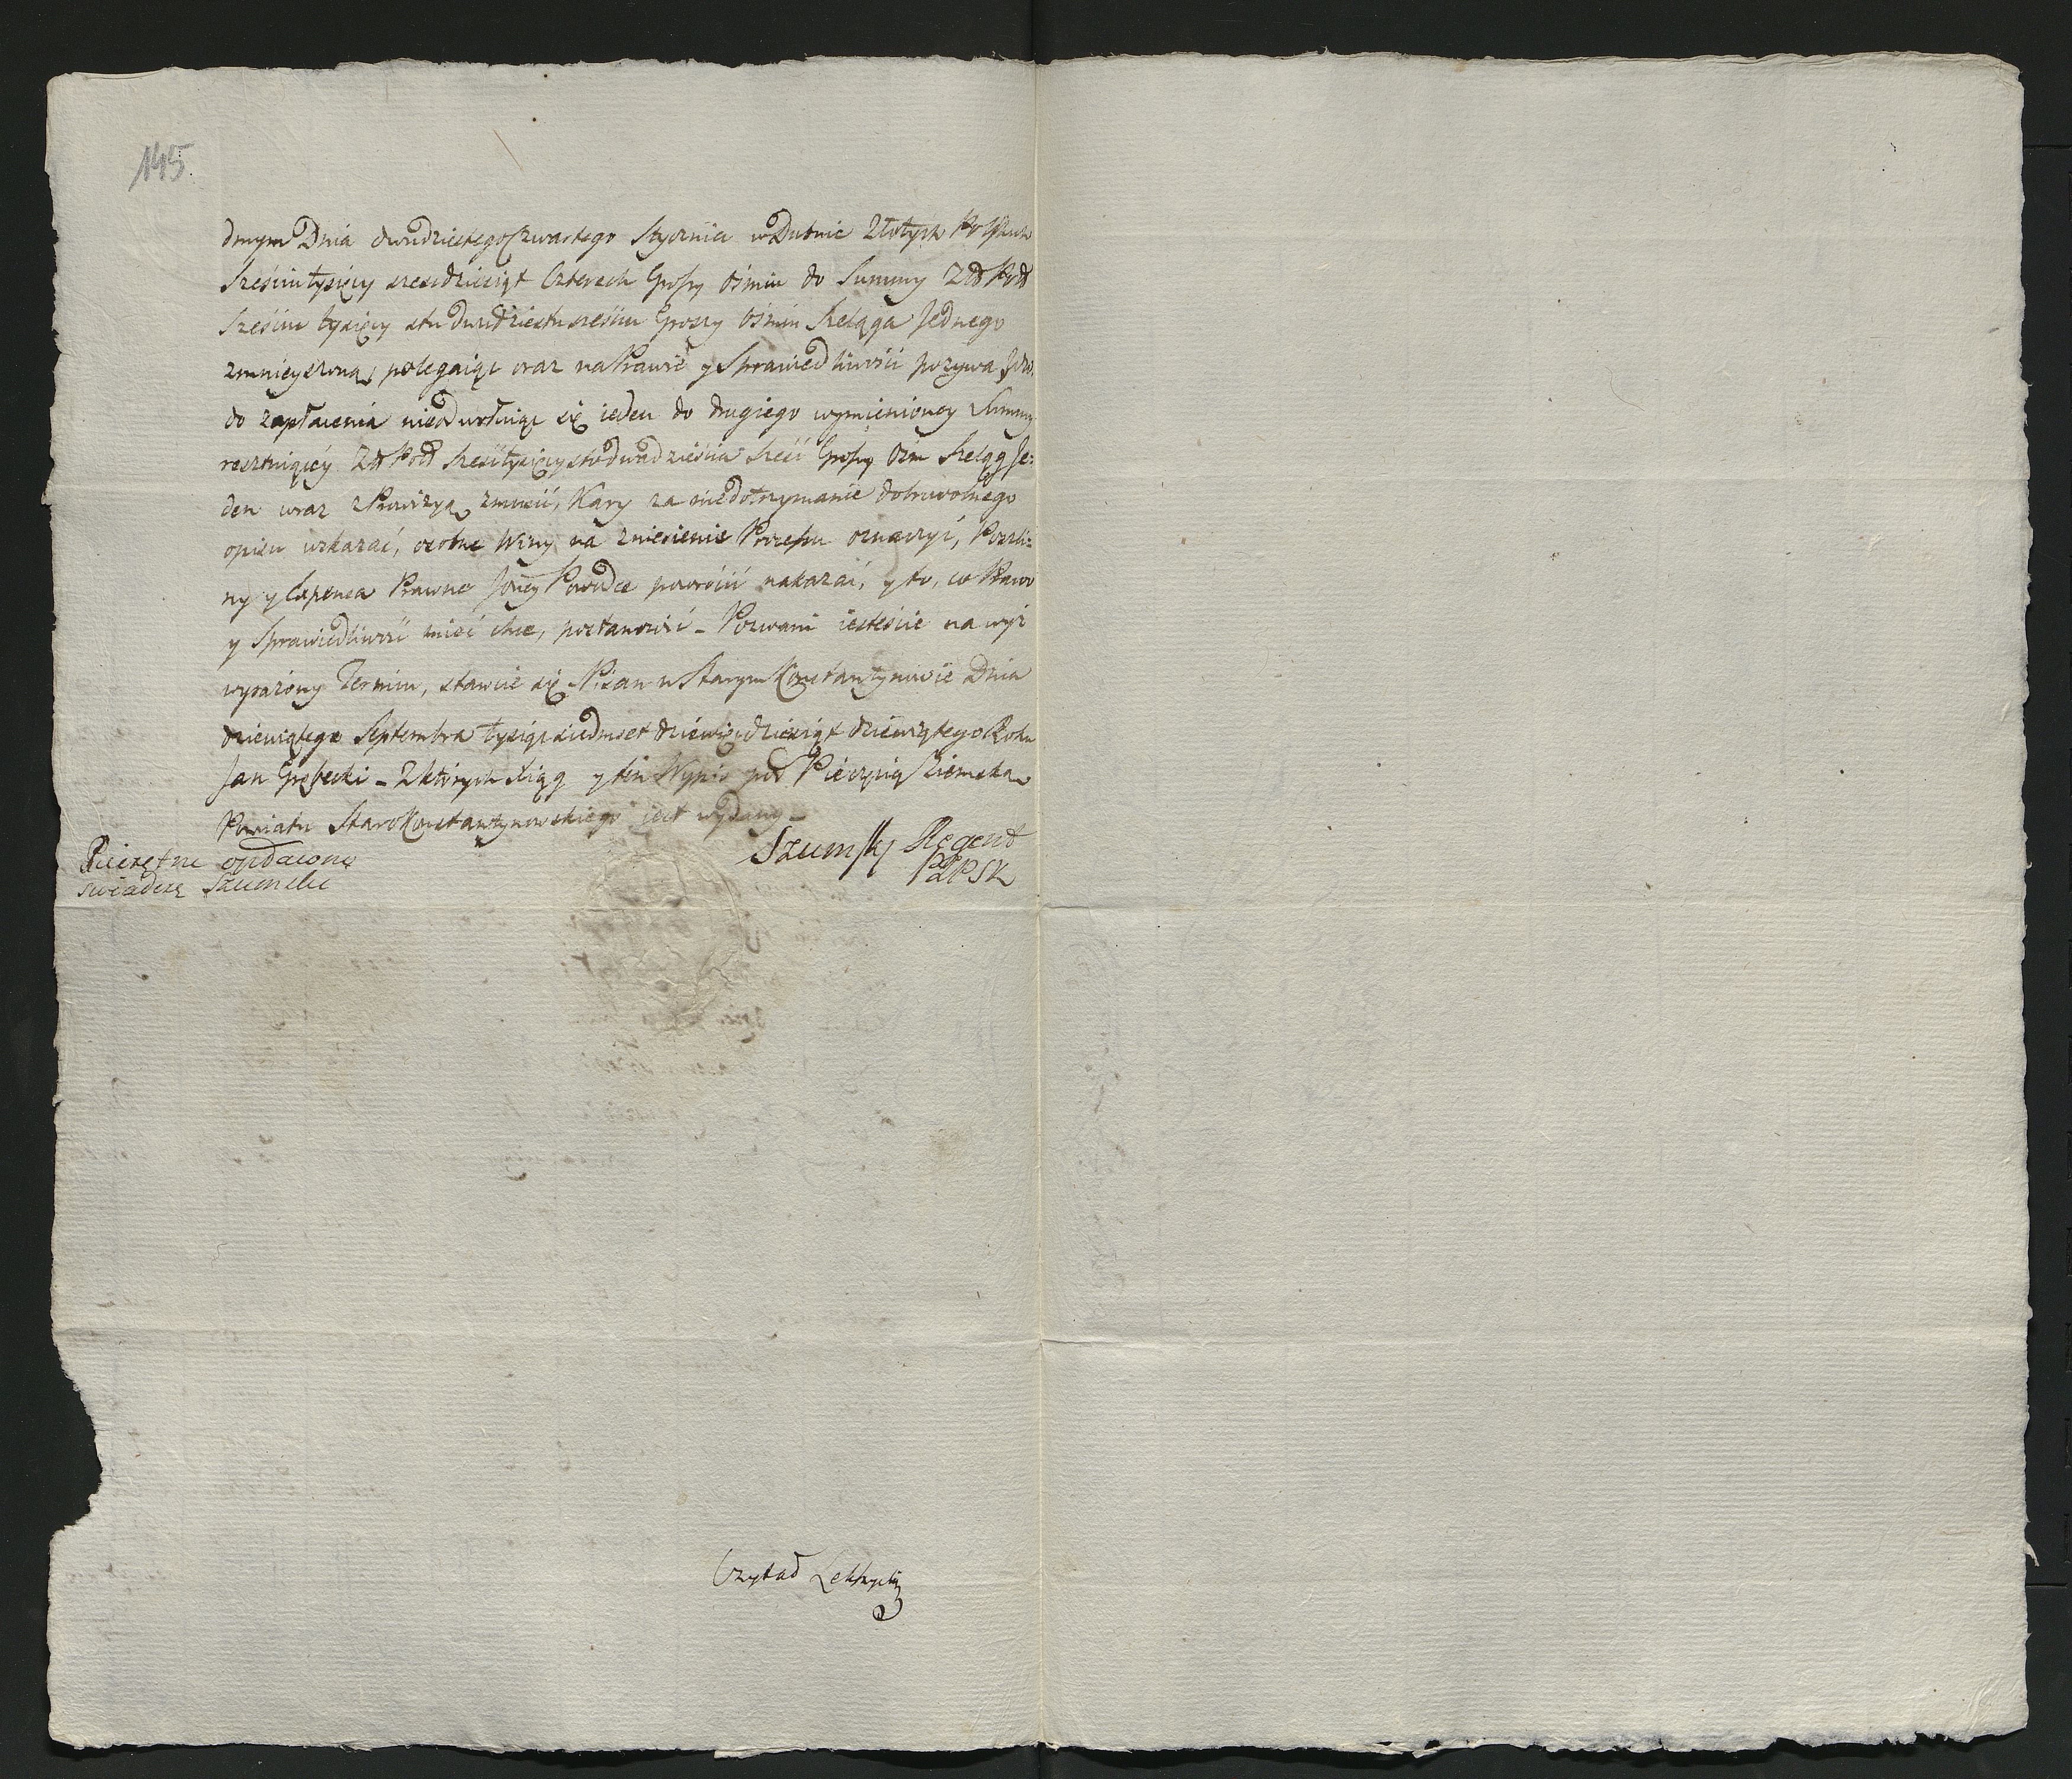 145.
dmym Dnia dwudziestego Czwartego Stycznia w Dubnie Złotych Polskich
Sześciu tysięcy sześdziesiąt Czterech Groszy Ośmiu do Summy Zł Pol
Sześciu tysięcy stu dwudziestu sześciu Groszy Ośmiu Szeląga Jednego
zmnieyszoną, polegaiąc oraz na Prawie y Sprawiedliwości pozywa
do zapłacenia nieodwołuiąc się ieden do drugiego wymienioney Summy
resztuiącey Zł Pol Sześć tysięcy sto dwadzieścia Sześć Groszy Ośm Szeląg Je:
den wraz z Prowizyą zmusić, Kary za niedotrzymanie dobrowolnego
opisu wskazać, osobne Winy na zniesienie Processu oznaczyć, Poszli:
ny y Expensa Prawne Powodce powrócić nakazać, y to, co Prawo
y Sprawiedliwość mieć chce, postanowić – Pozwani iesteście na wyż
wyrażony Termin, stawcie się – Pisan w Starym Konstantynowie Dnia
dziewiątego Septembra tysiąc siedmset dziewięćdziesiąt dziewiątego Roku
Jan – Z których Xiąg y ten Wypis pod Pieczęcią Ziemską
Powiatu Staro Konstantynowskiego jest wydany –
Szumsky Regent
PZPSK
Pieczętne opłacono
świadczę Szumski
Czytał